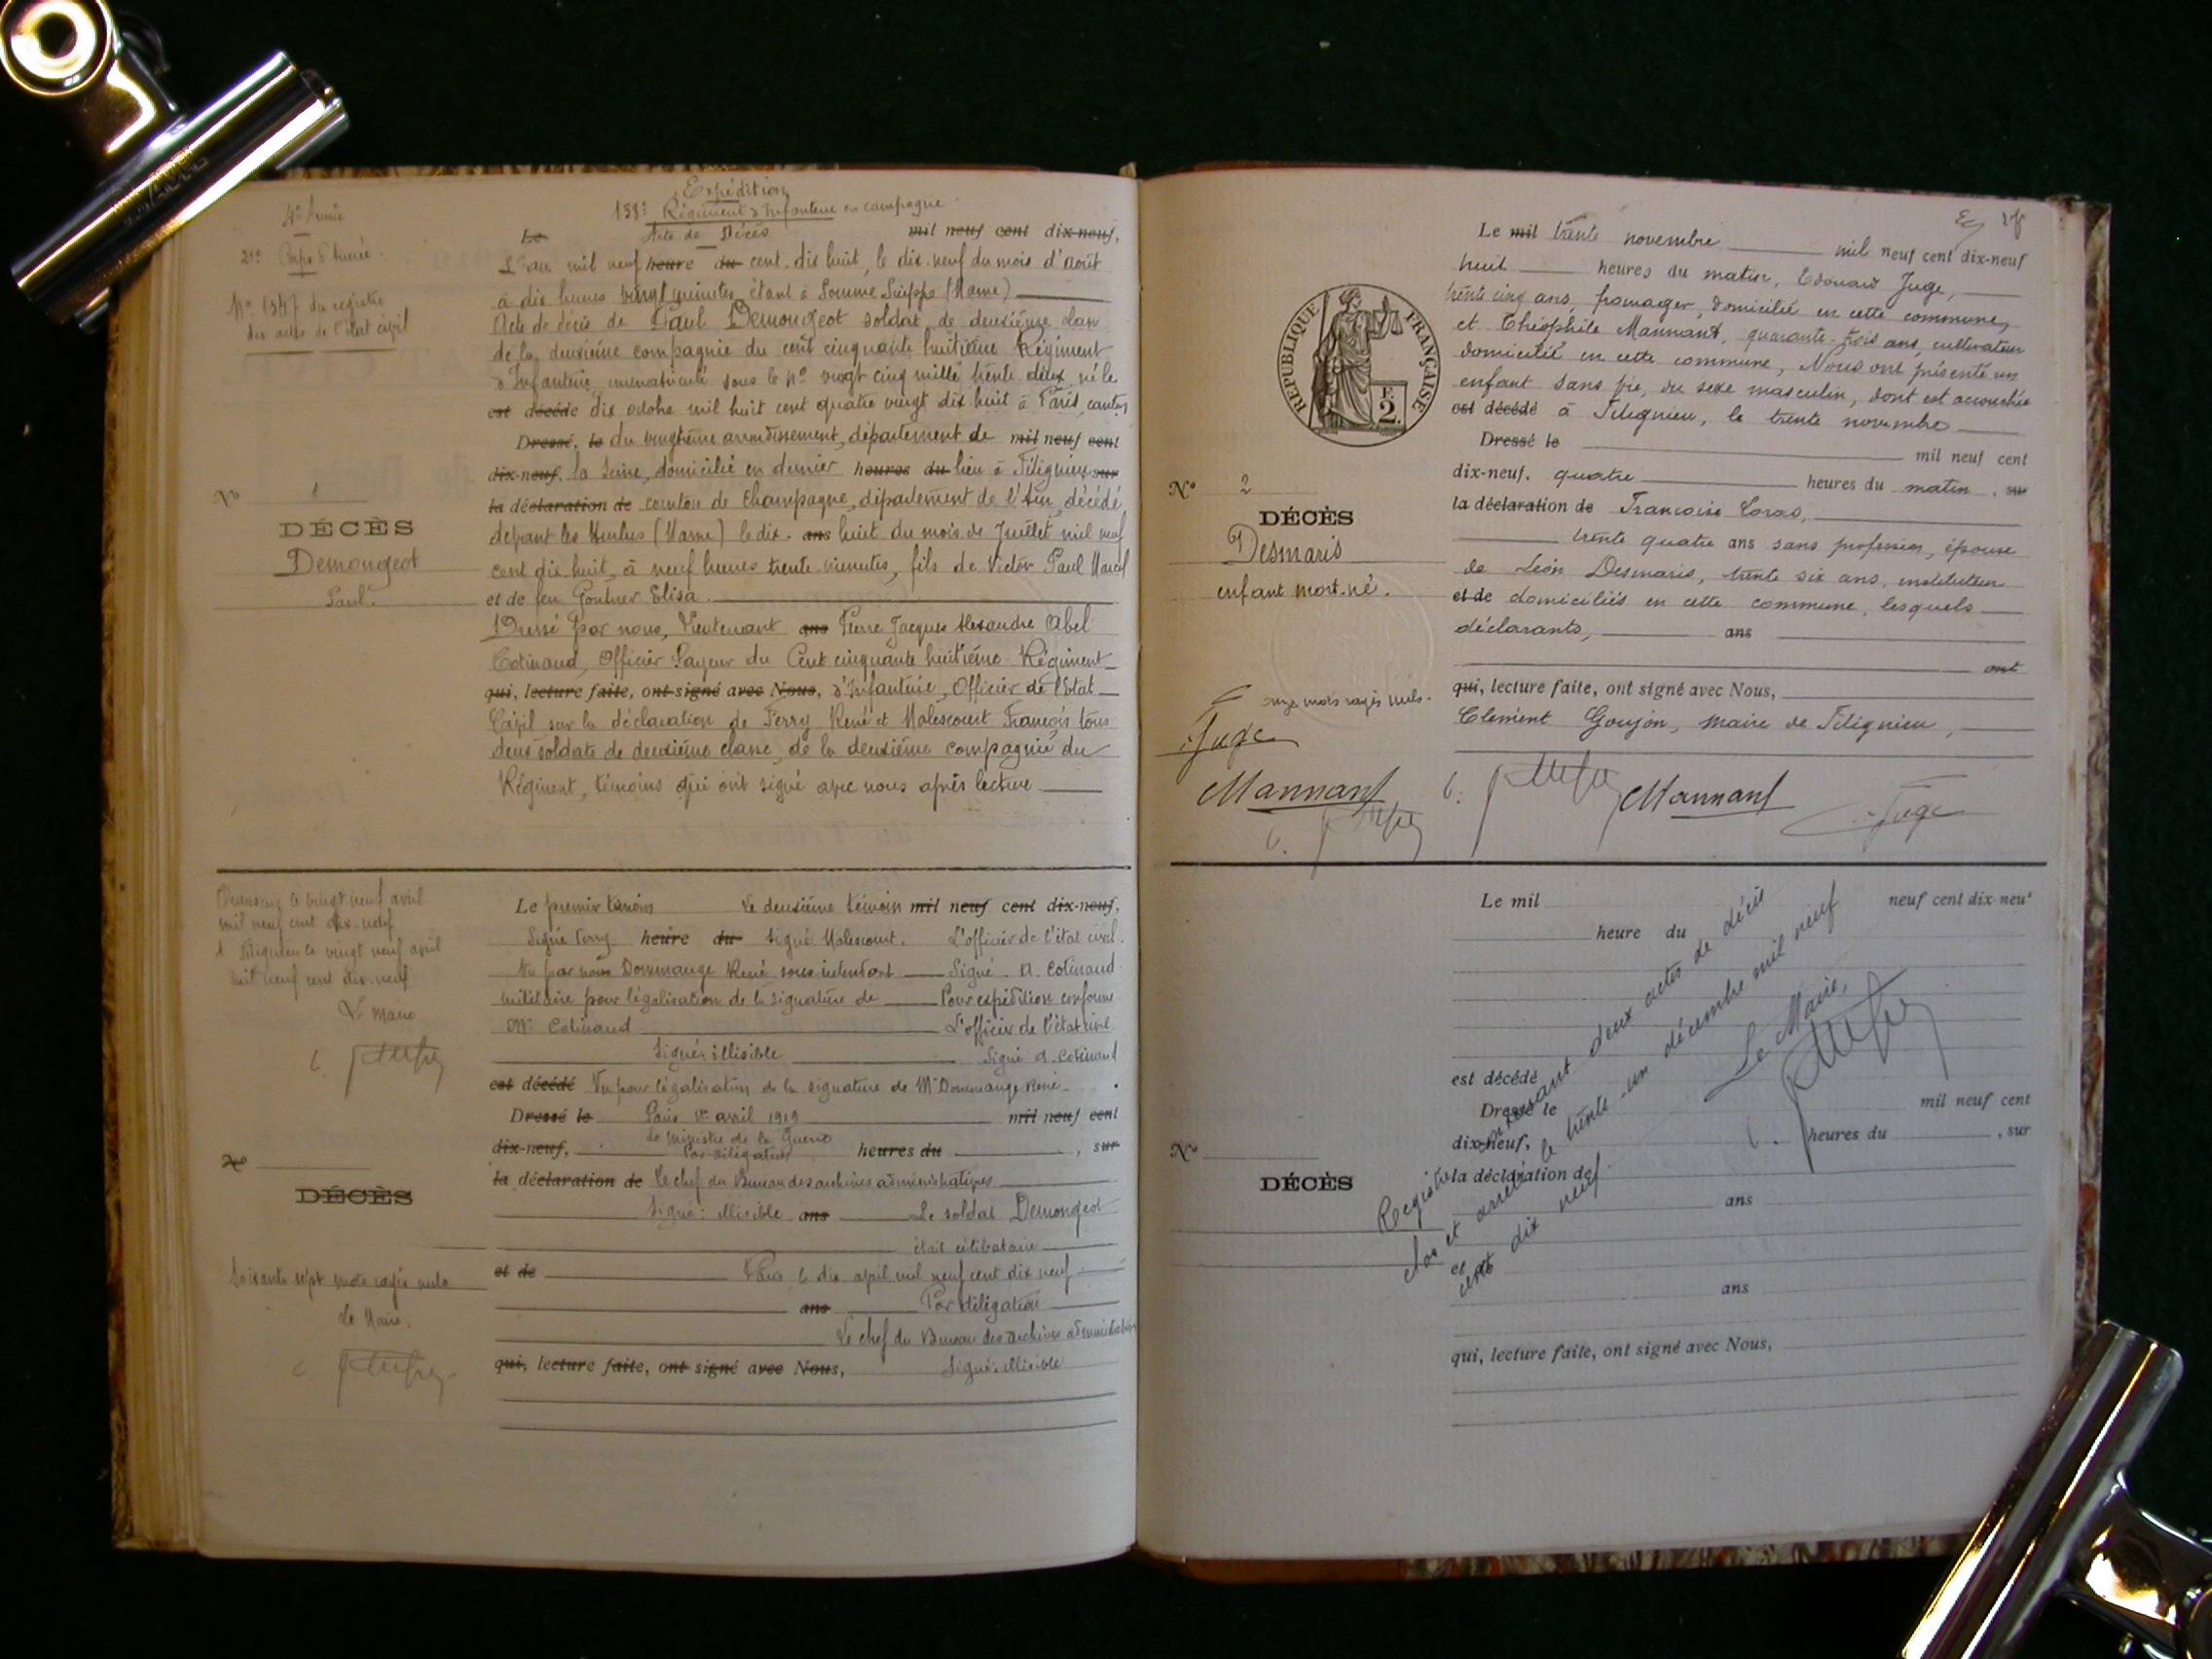 Expédition
158e Régiment d'Infanterie en campagne
Acte de Décès
4e Armée
21e Corps d'Armée
No 1347 du registre
des actes de l'état civil
Le mil neuf cent dix-neuf,
L'an mil neuf heure du cent dix huit, le dix-neuf du mois d'août
à dix heures vingt minutes, étant à Somme Suippe (Marne)
Acte de décès de Paul Demongeot soldat de deuxième classe
de la deuxième compagnie du cent cinquante huitième Régiment
d'Infanterie immatriculé sous le No vingt cinq mille trente deux, né le
est décédé dix octobre mil huit cent quatre vingt dix huit à Paris, canton
Dressé, le du vingtième arrondissement, département de mil neuf cent
dix-neuf, la Seine, domicilié en dernier heures du lieu à Vilignieu sur
la déclaration de canton de Champagne, département de l'Ain, décédé
devant les Hurlus (Marne) le dix- ans huit du mois de Juillet mil neuf
cent dix-huit, à neuf heures trente minutes, fils de Victor Paul Marcel
et de feu Gontner Elisa.
Dressé par nous, Lieutenant ans Pierre Jacques Alexandre Abel
Cotinaud, Officier Payeur du Cent cinquante huitième Régiment
qui, lecture faite, ont signé avec Nous, d'Infanterie, Officier de l'Etat
Civil sur la déclaration de Ferry René et Malescourt François tous
deux soldats de deuxième classe, de la deuxième compagnie du
Régiment, témoins qui ont signé avec nous après lecture.
No 1
DÉCÈS
Demongeot
Paul.
Transcrit le vingt neuf avril
mil neuf cent dix-neuf
A Vilignieu le vingt neuf avril
mil neuf cent dix-neuf
Le Maire
Le premier témoin Le deuxième témoin mil neuf cent dix-neuf,
Signé Ferry heure du Signé Malescourt. L'officier de l'état civil.
Vu par nous Dommange René sous intendant Signé A. Cotinaud
militaire pour légalisation de la signature de Pour expédition conforme
Mr Cotinaud L'officier de l'état civil
Signé: illisible Signé A. Cotinaud
est décédé Vu pour légalisation de la signature de Mr Dommange René
Dressé le Paris 1er avril 1919 mil neuf cent
dix-neuf, Le Ministre de la Guerre
Par délégation heures du , sur
la déclaration de le chef du Bureau des archives administratives
Signé: illisible ans Le soldat Demongeot
était célibataire
et de Paris le dix avril mil neuf cent dix neuf
ans Par délégation
Le chef du Bureau des archives administratives
qui, lecture faite, ont signé avec Nous, Signé: illisible
No
DÉCÈS
Soixante sept mots rayés nuls
Le Maire.
Le mil trente novembre mil neuf cent dix-neuf
huit heures du matin, Edouard Juge,
trente cinq ans, fromager, domicilié en cette commune,
et Théophile Mannant, quarante-trois ans, cultivateur
domicilié en cette commune, Nous ont présenté un
enfant sans vie, du sexe masculin, dont est accouchée
est décédé à Vilignieu, le trente novembre
Dressé le mil neuf cent
dix-neuf, quatre heures du matin, sur
la déclaration de Françoise Coras,
trente quatre ans sans profession, épouse
de Léon Desmaris, trente six ans, instituteur
et de domiciliés en cette commune, lesquels
déclarants, ans
ont
qui, lecture faite, ont signé avec Nous,
Clément Goujon, maire de Vilignieu,
RÉPUBLIQUE FRANÇAISE
F. 2.
No 2
DÉCÈS
Desmaris
enfant mort-né.
onze mots rayés nuls.
Juge
Mannant
Mannant
Juge
Le mil neuf cent dix-neuf
heure du
est décédé
Dressé le mil neuf cent
dix-neuf, heures du , sur
la déclaration de
ans
et de
ans
qui, lecture faite, ont signé avec Nous,
No
DÉCÈS
Registre contenant deux actes de décès
clos et arrêté le trente-un décembre mil neuf
cent dix neuf
Le Maire,